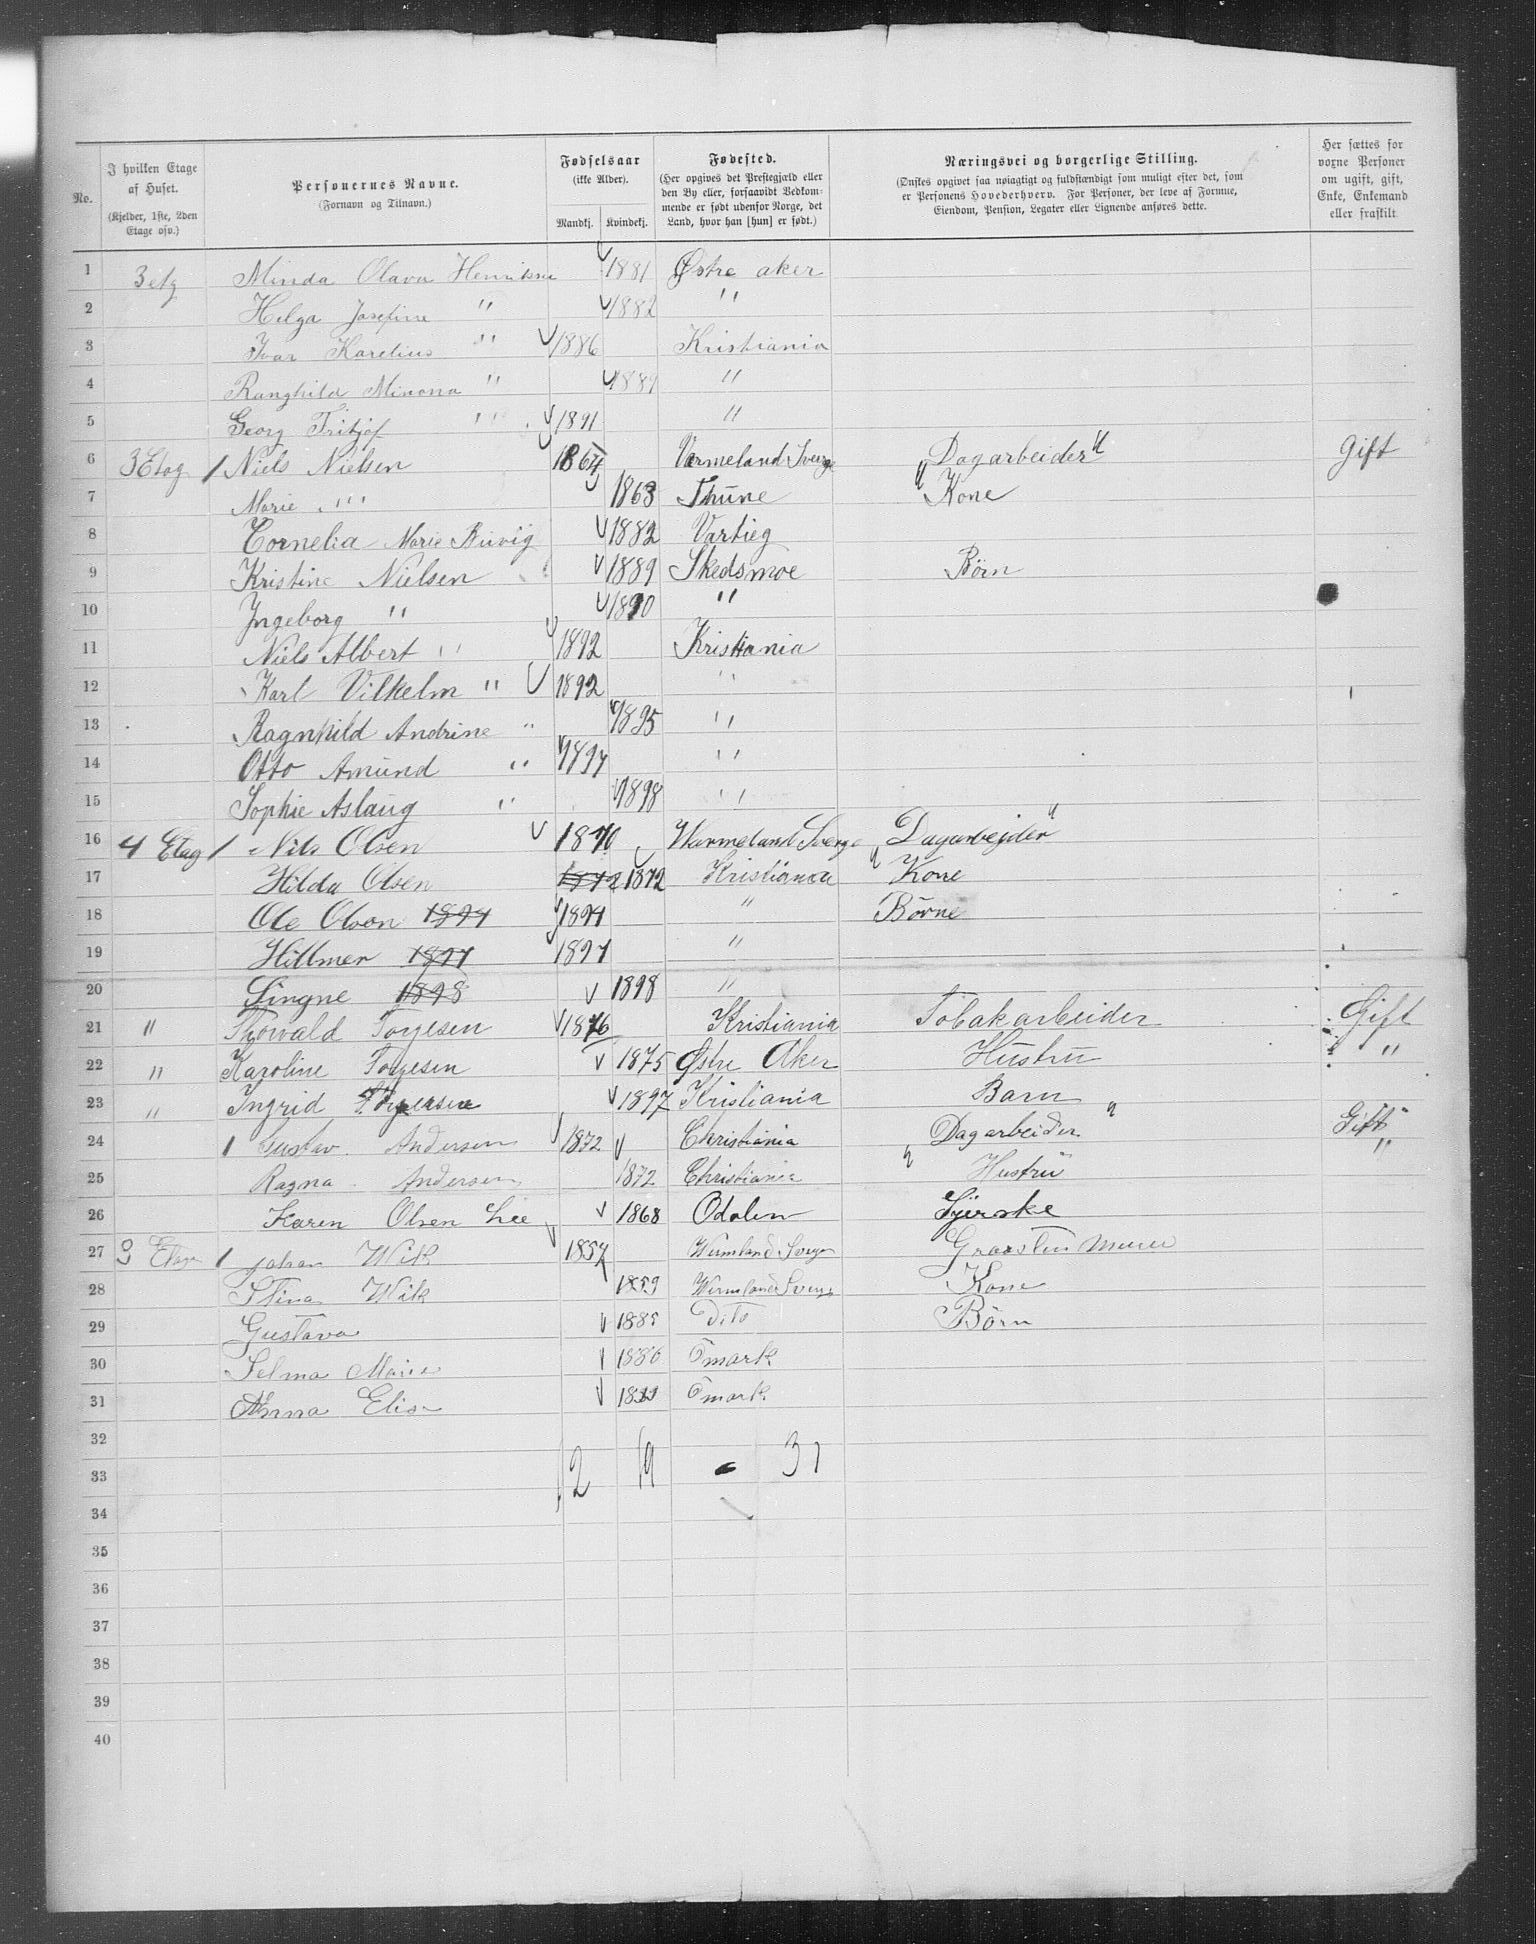 No. | I hvilken Etage af Huset. (Kjelder, 1ste, 2den Etage osv.) | Personernes Navne. (Fornavn og Tilnavn.) | Fødselsaar (ikke Alder). Mandkj. | Kvindekj. | Fødested. (Her opgives det Prestegjæld eller den By eller, forsaavidt Vedkommende er født udenfor Norge, det Land, hvor han [hun] er født.) | Næringsvei og borgerlige Stilling. (Ønskes opgivet saa nøiagtigt og fuldstændigt som muligt efter det, som er Personens Hovederhverv. For Personer, der leve af Formue, Eiendom, Pension, Legater eller Lignende anføres dette. | Her sættes for voxne Personer om ugift, gift, Enke, Enkemand eller fraskilt.
1 3 etg Minda Olava Henriksen 1881 Østre aker
2 Helga Josefine " 1882 "
3 Ivar Karelius " 1886 Kristiania
4 Ranghild Minona " 1889 "
5 Georg Fritjof " 1891 "
6 3 Etag 1 Niels Nielsen 1864 Varmeland Sverge Dagarbeider Gift
7 Marie " 1863 Thune Kone
8 Cornelia Marie 1882 Vartieg
9 Kristine Nielsen 1889 Skedsmoe Børn
10 Ingeborg " 1890 "
11 Niels Albert " 1892 Kristiania
12 Karl Vilhelm " 1892 "
13 Ragnhild Andrine " 1895 "
14 Otto Amund " 1897 "
15 Sophie Aslaug " 1898 "
16 4 Etag 1 Nils Olsen 1870 Warmeland Sverge Dagarbejder
17 Hilda Olsen 1872 1872 Kristiania Kone
18 Ole Olsen 1894 1894 " Børne
19 Hillmer 1897 1897 "
20 Singne 1898 1898 "
21 " Thowald Torgesen 1876 Kristiania Tobakarbeider Gift
22 " Karoline Torgesen 1875 Østre Aker Hustru "
23 " Ingrid Torgersen 1897 Kristiania Barn
24 1 Gustav Andersen 1872 Christiania Dagarbeider Gift
25 Ragna Andersen 1872 Christiania Hustru "
26 Karen Olsen Lie 1868 Odalen Syerske
27 3 Etage 1 Johan Wik 1857 Wermland Sverge
28 Stina Wik 1859 Wermland Sverge Kone
29 Gustava 1885 Dito Børn
30 Selma Marie 1886
31 Anna Elise
32
33 12 19 - 31
34
35
36
37
38
39
40